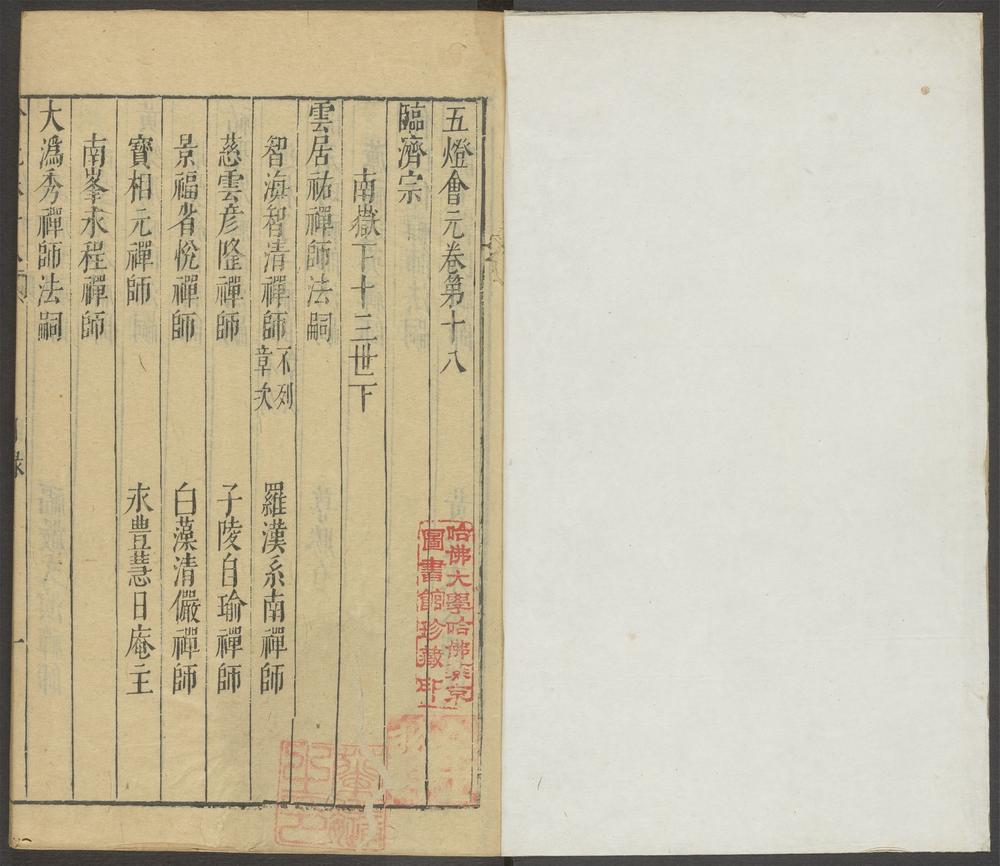 五燈會元卷第十八
臨濟宗
南嶽下十三世下
雲居祐禪師法嗣
智海智清禪師 不列章次 羅漢系南禪師
慈雲彦隆禪師 子陵自瑜禪師
景福省悅禪師 白藻清儼禪師
寶相元禪師 永豊慧日庵主
南峯永程禪師
大潙秀禪師法嗣
哈佛大學哈佛燕京
圖書館珍藏印